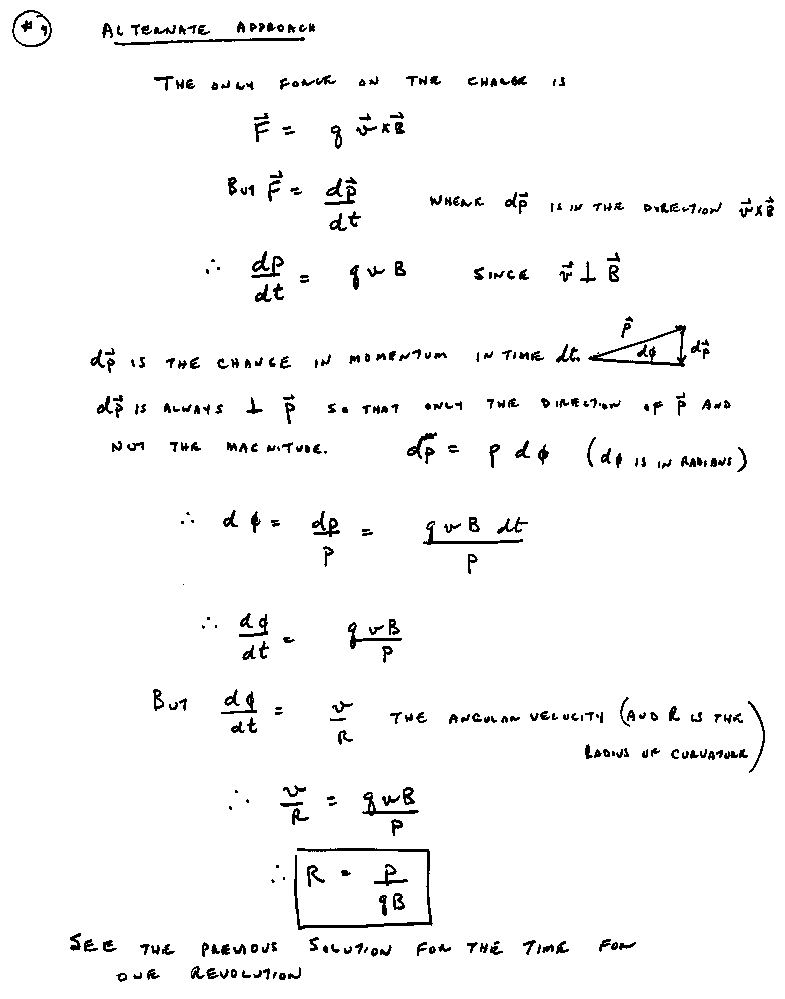 #9 ALTERNATE APPROACH
THE ONLY FORCE ON THE CHARGE IS
F⃗ = q v⃗ × B⃗
BUT F⃗ = dp⃗/dt WHERE dp⃗ IS IN THE DIRECTION v⃗ × B⃗
∴ dp/dt = q v B SINCE v⃗ ⊥ B⃗
dp⃗ IS THE CHANGE IN MOMENTUM IN TIME dt. p⃗ dφ dp⃗
dp⃗ IS ALWAYS ⊥ p⃗ SO THAT ONLY THE DIRECTION OF p⃗ AND
NOT THE MAGNITUDE. dp⃗ = p dφ (dφ IS IN RADIANS)
∴ dφ = dp/p = q v B dt/p
∴ dφ/dt = q v B/p
BUT dφ/dt = v/R THE ANGULAR VELOCITY (AND R IS THE
RADIUS OF CURVATURE)
∴ v/R = q v B/p
∴ R = p/qB
SEE THE PREVIOUS SOLUTION FOR THE TIME FOR
ONE REVOLUTION